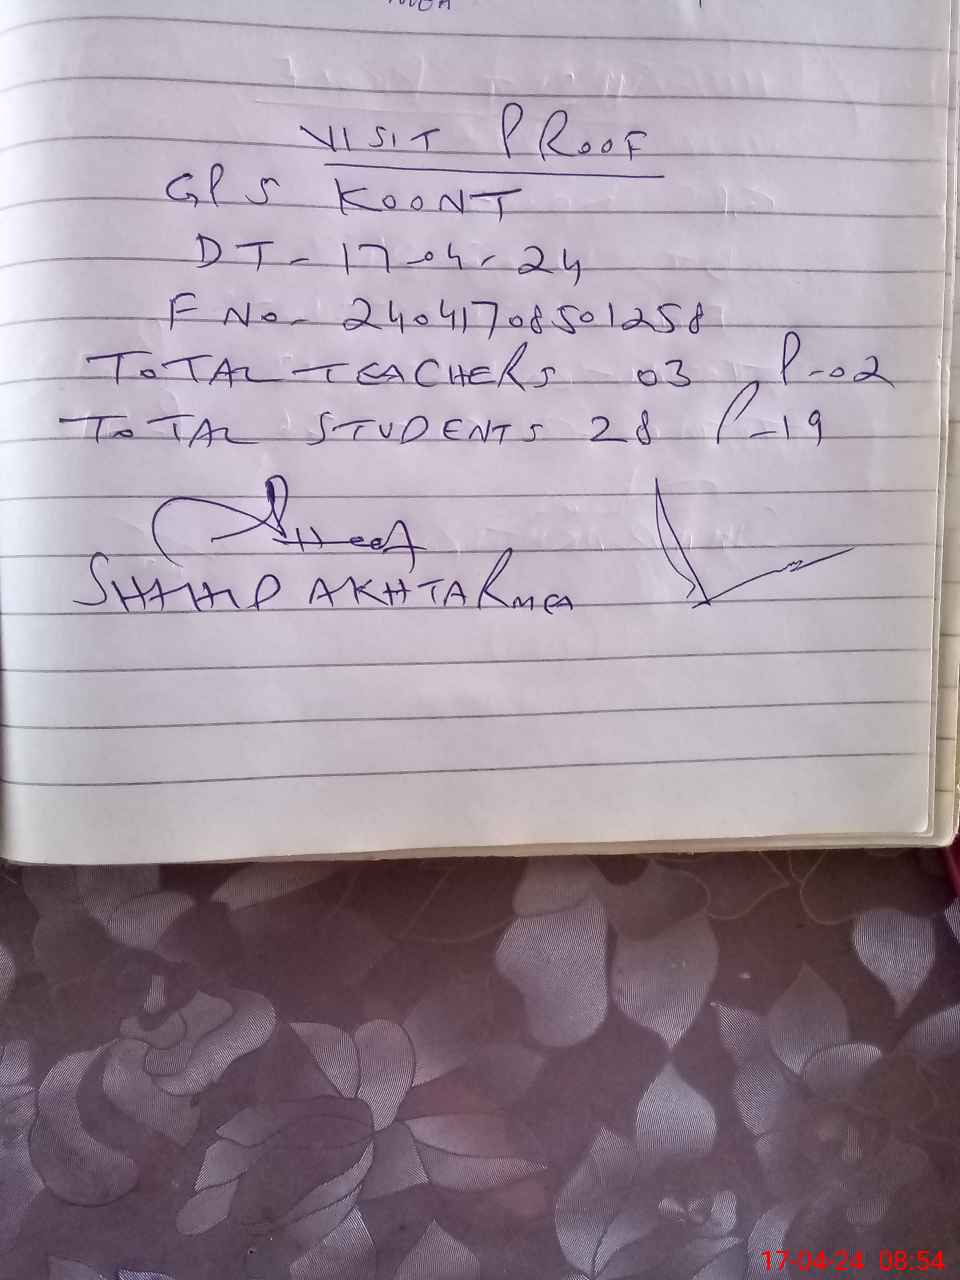 VISIT PROOF
GPS KOONT
DT - 17-04-24
F No- 24041708501258
TOTAL TEACHERS 03 P-02
TOTAL STUDENTS 28 P-19
SHAHID AKHTAR MEA
17-04-24 08:54